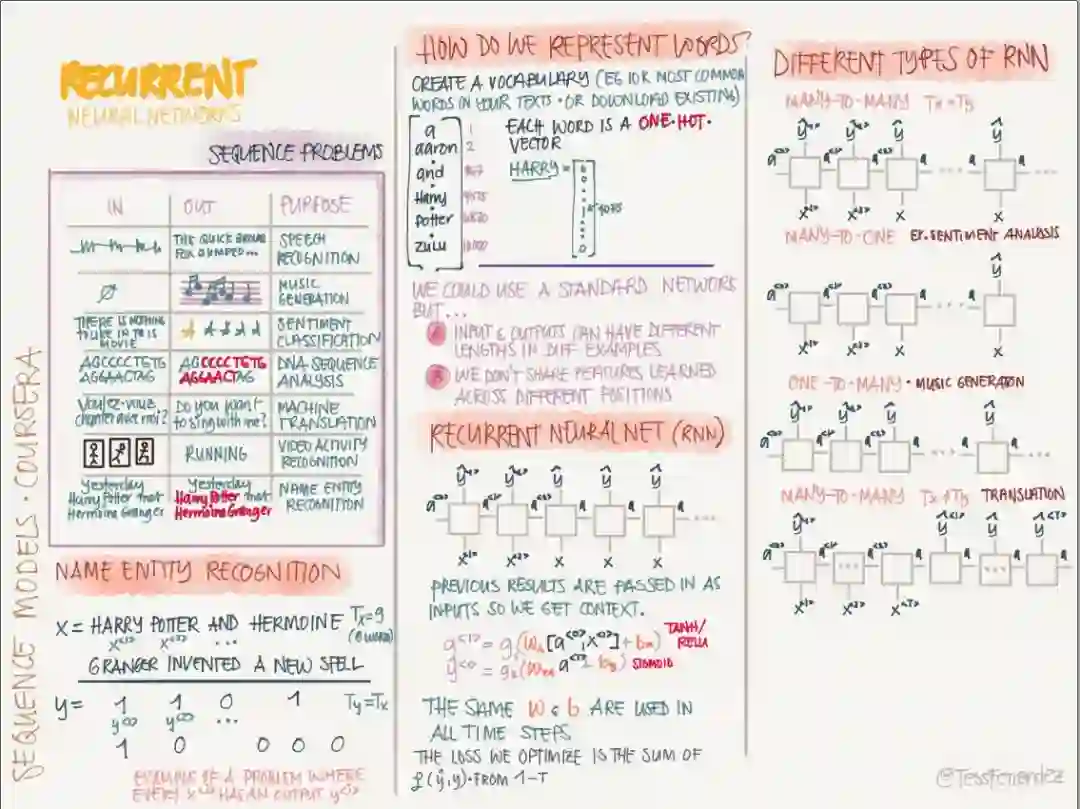 RECURRENT
NEURAL NETWORKS
SEQUENCE PROBLEMS
IN OUT PURPOSE
THE QUICK BROWN
FOX JUMPED...
SPEECH
RECOGNITION
∅
MUSIC
GENERATION
THERE IS NOTHING
TO LIKE IN THIS
MOVIE
SENTIMENT
CLASSIFICATION
AGCCCCTGTG
AGGAACTAG
AGCCCCTGTG
AGGAACTAG
DNA SEQUENCE
ANALYSIS
Voulez-vous
chanter avec moi?
Do you want
to sing with me?
MACHINE
TRANSLATION
RUNNING
VIDEO ACTIVITY
RECOGNITION
Yesterday
Harry Potter met
Hermoine Granger
Yesterday
Harry Potter met
Hermoine Granger
NAME ENTITY
RECOGNITION
NAME ENTITY RECOGNITION
X = HARRY POTTER AND HERMOINE Tx=9
x<1> x<2> ... (9 WORDS)
GRANGER INVENTED A NEW SPELL
y = 1 1 0 1 Ty=Tx
y<1> y<2> ...
1 0 0 0 0
EXAMPLE OF A PROBLEM WHERE
EVERY x HAS AN OUTPUT y
SEQUENCE MODELS · COURSERA
HOW DO WE REPRESENT WORDS?
CREATE A VOCABULARY (EG 10K MOST COMMON
WORDS IN YOUR TEXTS · OR DOWNLOAD EXISTING)
a 1
aaron 2
and
Harry
Potter
zulu
EACH WORD IS A ONE·HOT·
VECTOR
HARRY =
WE COULD USE A STANDARD NETWORK
BUT...
INPUT & OUTPUTS CAN HAVE DIFFERENT
LENGTHS IN DIFF EXAMPLES
WE DON'T SHARE FEATURES LEARNED
ACROSS DIFFERENT POSITIONS
RECURRENT NEURAL NET (RNN)
ŷ ŷ ŷ ŷ ŷ
a a a a a a ...
x<1> x<2> x x x
PREVIOUS RESULTS ARE PASSED IN AS
INPUTS SO WE GET CONTEXT.
TANH/
RELU
SIGMOID
THE SAME W & b ARE USED IN
ALL TIME STEPS
THE LOSS WE OPTIMIZE IS THE SUM OF
ℒ(ŷ,y)·FROM 1-T
DIFFERENT TYPES OF RNN
MANY-TO-MANY Tx=Ty
ŷ ŷ ŷ ŷ
a a a a a ...
x x x x
MANY-TO-ONE EX. SENTIMENT ANALYSIS
ŷ
a a a a a
x x x x
ONE-TO-MANY · MUSIC GENERATION
ŷ ŷ ŷ ŷ
a a a a a
x
MANY-TO-MANY Tx≠Ty TRANSLATION
ŷ ŷ ŷ ŷ
a a a a a a
x x x
@TessFerrandez